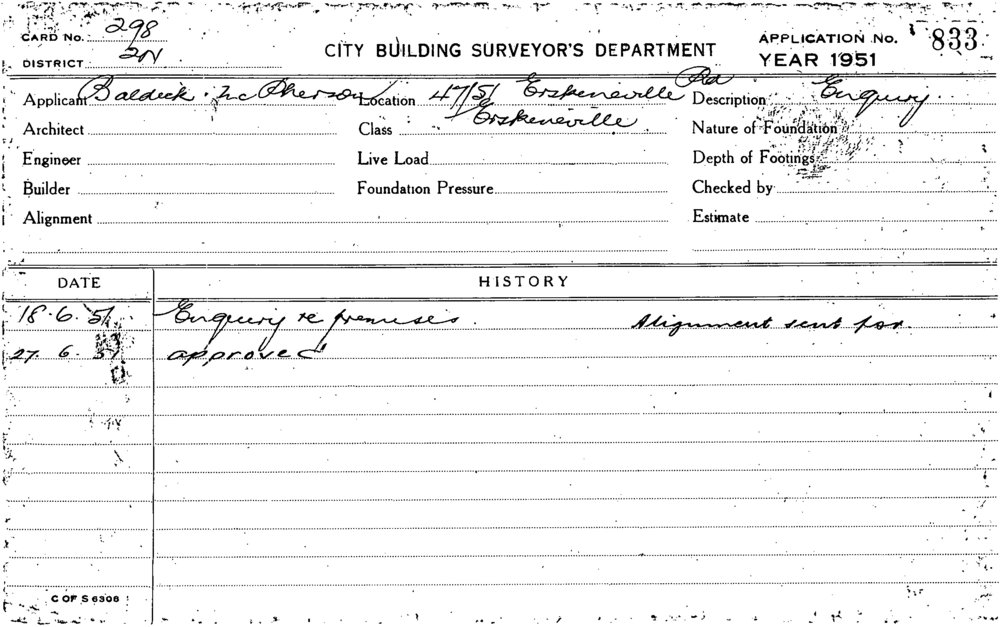 CARD No. 298
DISTRICT 2N
CITY BUILDING SURVEYOR'S DEPARTMENT
APPLICATION No. 833
YEAR 1951
Applicant Baldick McPherson Location 47/51 Erskineville Rd Description Enquiry.
Erskineville
Architect Class Nature of Foundation
Engineer Live Load Depth of Footings
Builder Foundation Pressure Checked by
Alignment Estimate
DATE HISTORY
18.6.51 Enquiry re premises. Alignment sent for.
27.6.51 approved
C OF S 6306